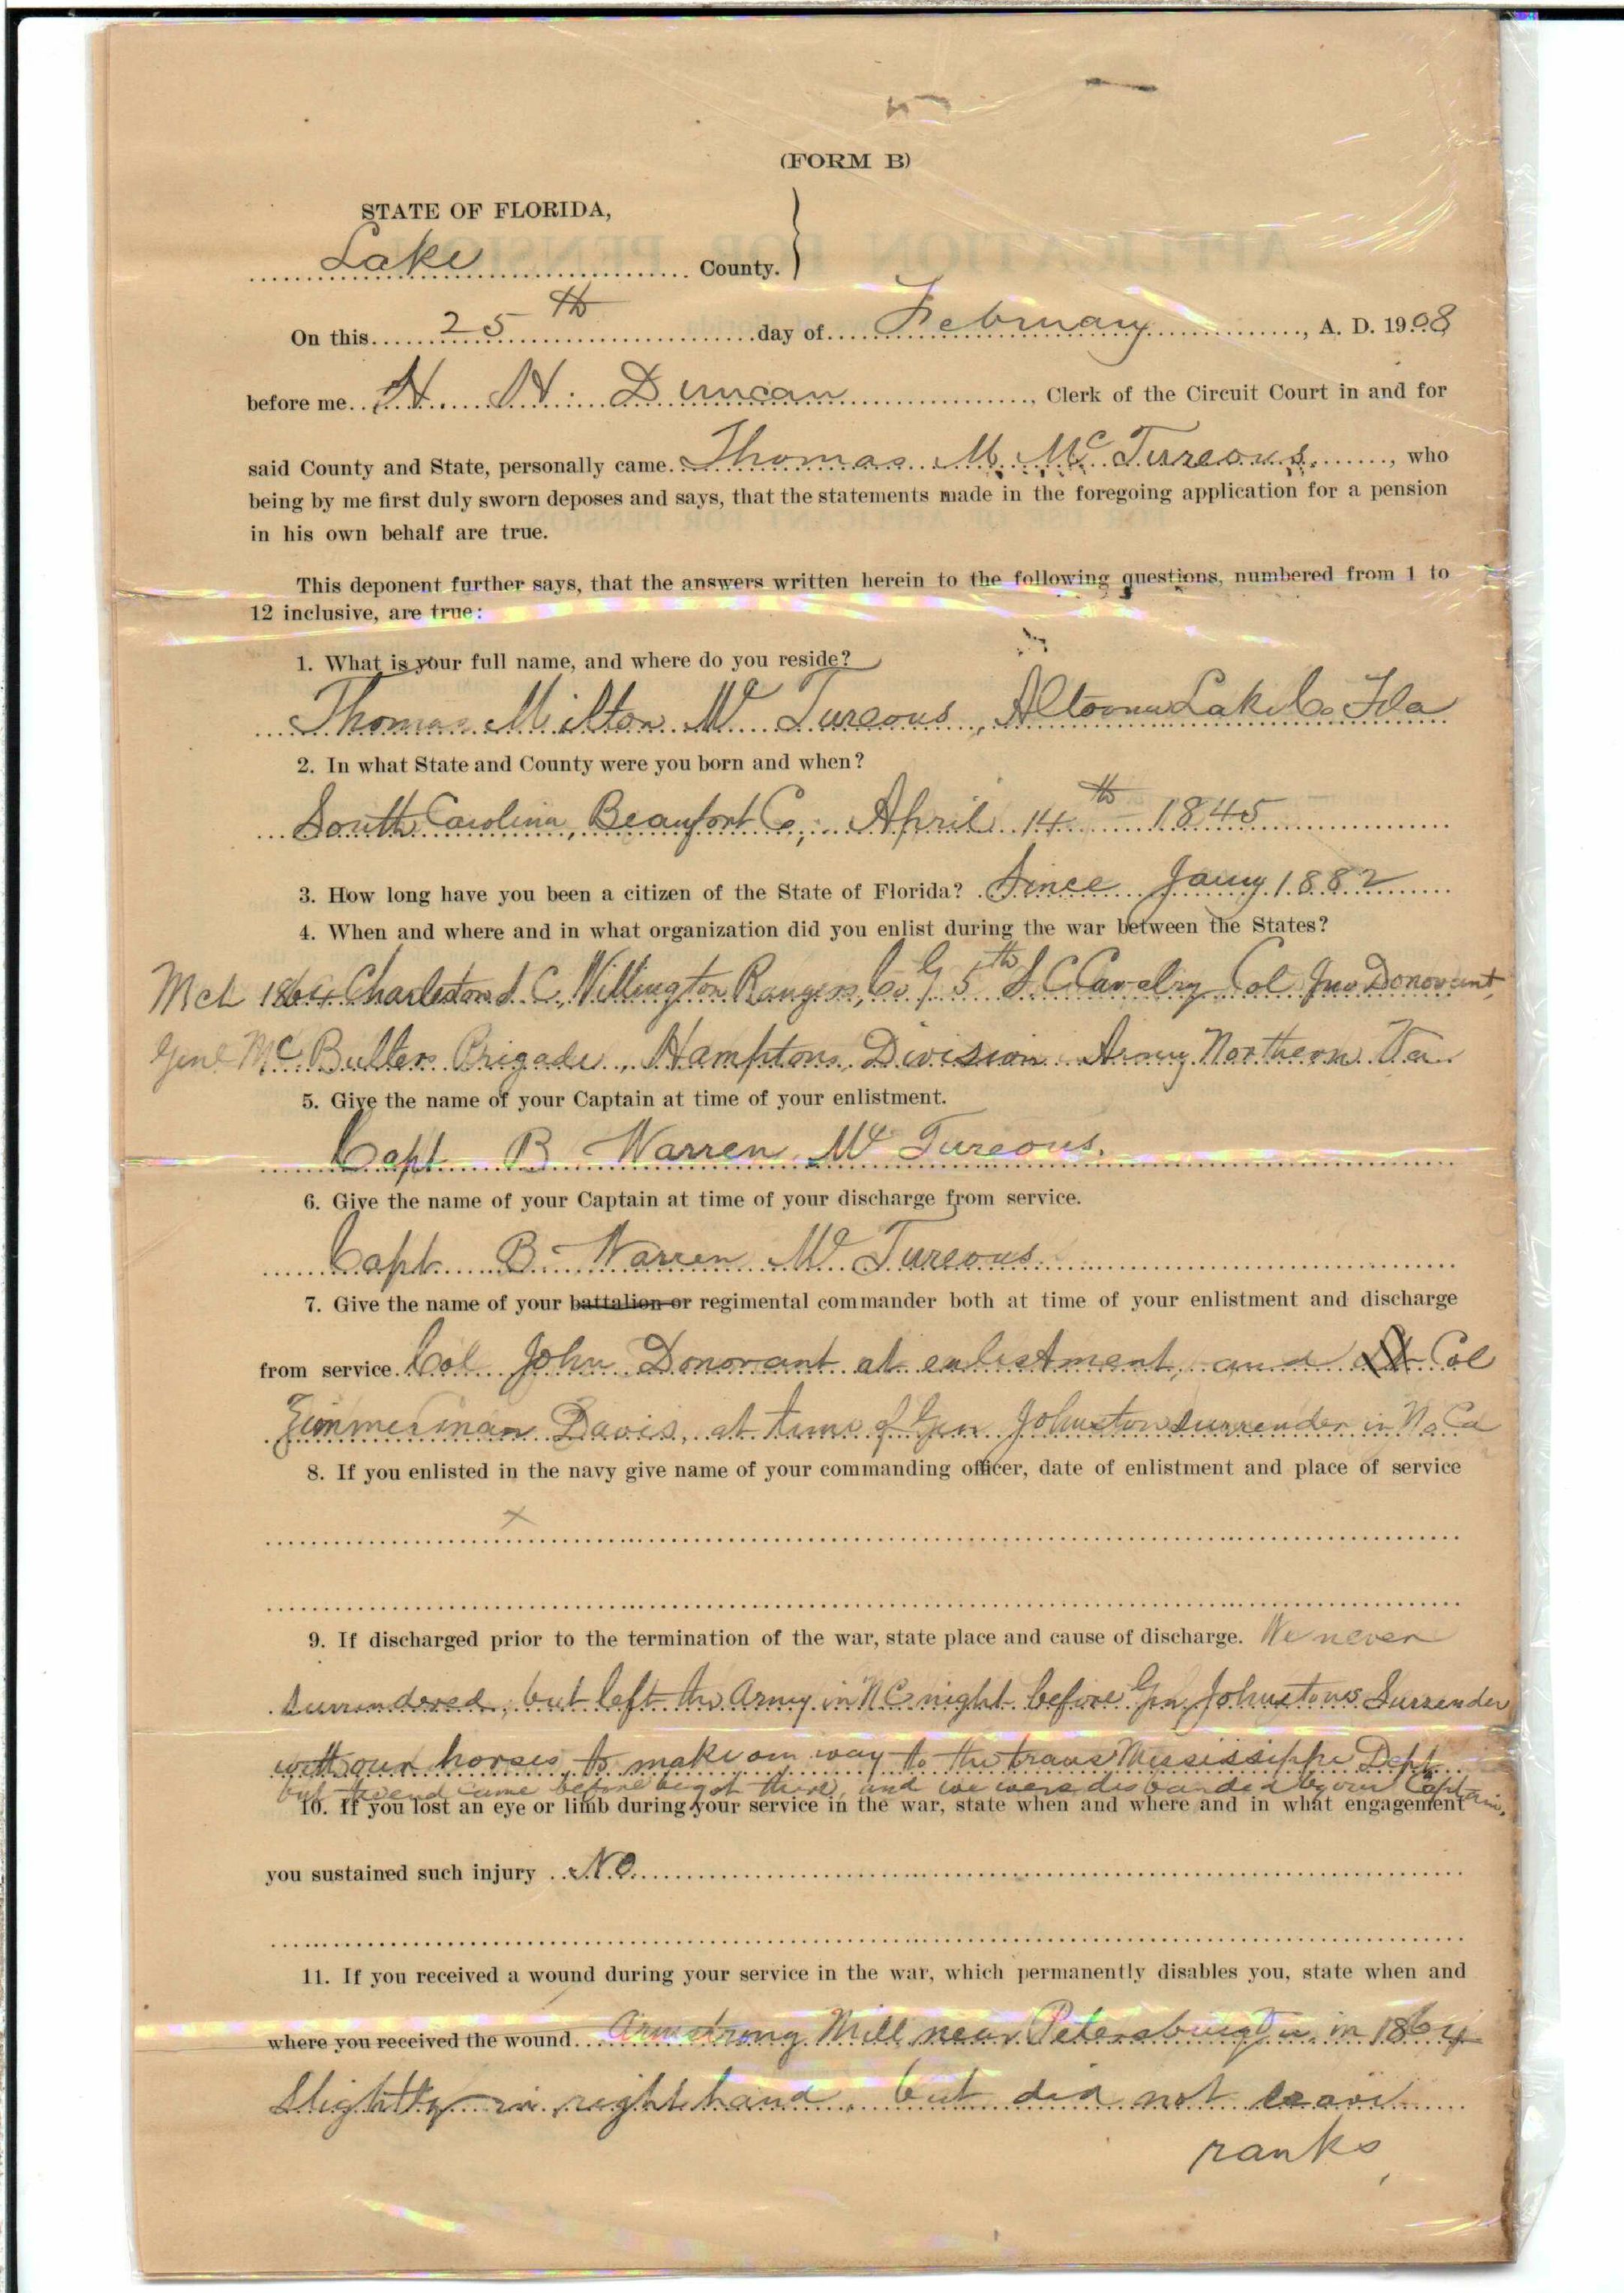 (FORM B)
STATE OF FLORIDA,
Lake County.
On this 25th day of February, A. D. 1908
before me H. H. Duncan, Clerk of the Circuit Court in and for
said County and State, personally came Thomas M. Mc Tureous, who
being by me first duly sworn deposes and says, that the statements made in the foregoing application for a pension
in his own behalf are true.
This deponent further says, that the answers written herein to the following questions, numbered from 1 to
12 inclusive, are true:
1. What is your full name, and where do you reside?
Thomas Milton Mc Tureous, Altoona Lake Co Fla
2. In what State and County were you born and when?
South Carolina, Beaufort Co, April 14th 1845
3. How long have you been a citizen of the State of Florida? Since Jany 1882
4. When and where and in what organization did you enlist during the war between the States?
Mch 1864 Charleston S C, Willington Rangers, Co G 5th S C Cavalry Col Jno Donovant,
Genl Mc Butlers Brigade, Hamptons Division Army Northern Va
5. Give the name of your Captain at time of your enlistment.
Capt B Warren Mc Tureous.
6. Give the name of your Captain at time of your discharge from service.
Capt B Warren Mc Tureous
7. Give the name of your battalion or regimental commander both at time of your enlistment and discharge
from service Col John Donovant at enlistment, and Lt Col
Zimmerman Davis, at time of Gen Johnston surrender in No Ca
8. If you enlisted in the navy give name of your commanding officer, date of enlistment and place of service
x
9. If discharged prior to the termination of the war, state place and cause of discharge. We never
surrendered, but left the Army in N C night before Gen Johnstons Surrender
with our horses to make our way to the trans Mississippi Dept
but the end came before we got there, and we were disbanded by our Captain.
10. If you lost an eye or limb during your service in the war, state when and where and in what engagement
you sustained such injury No
11. If you received a wound during your service in the war, which permanently disables you, state when and
where you received the wound Armstrong Mill near Petersburg Va in 1864
Slightly in right hand, but did not leave
ranks